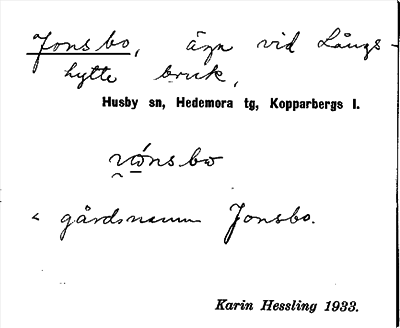 Jonsbo, äga vid Långs-
hytte bruk,
Husby sn, Hedemora tg, Kopparbergs l.
< gårdsnamn Jonsbo.
Karin Hessling 1933.